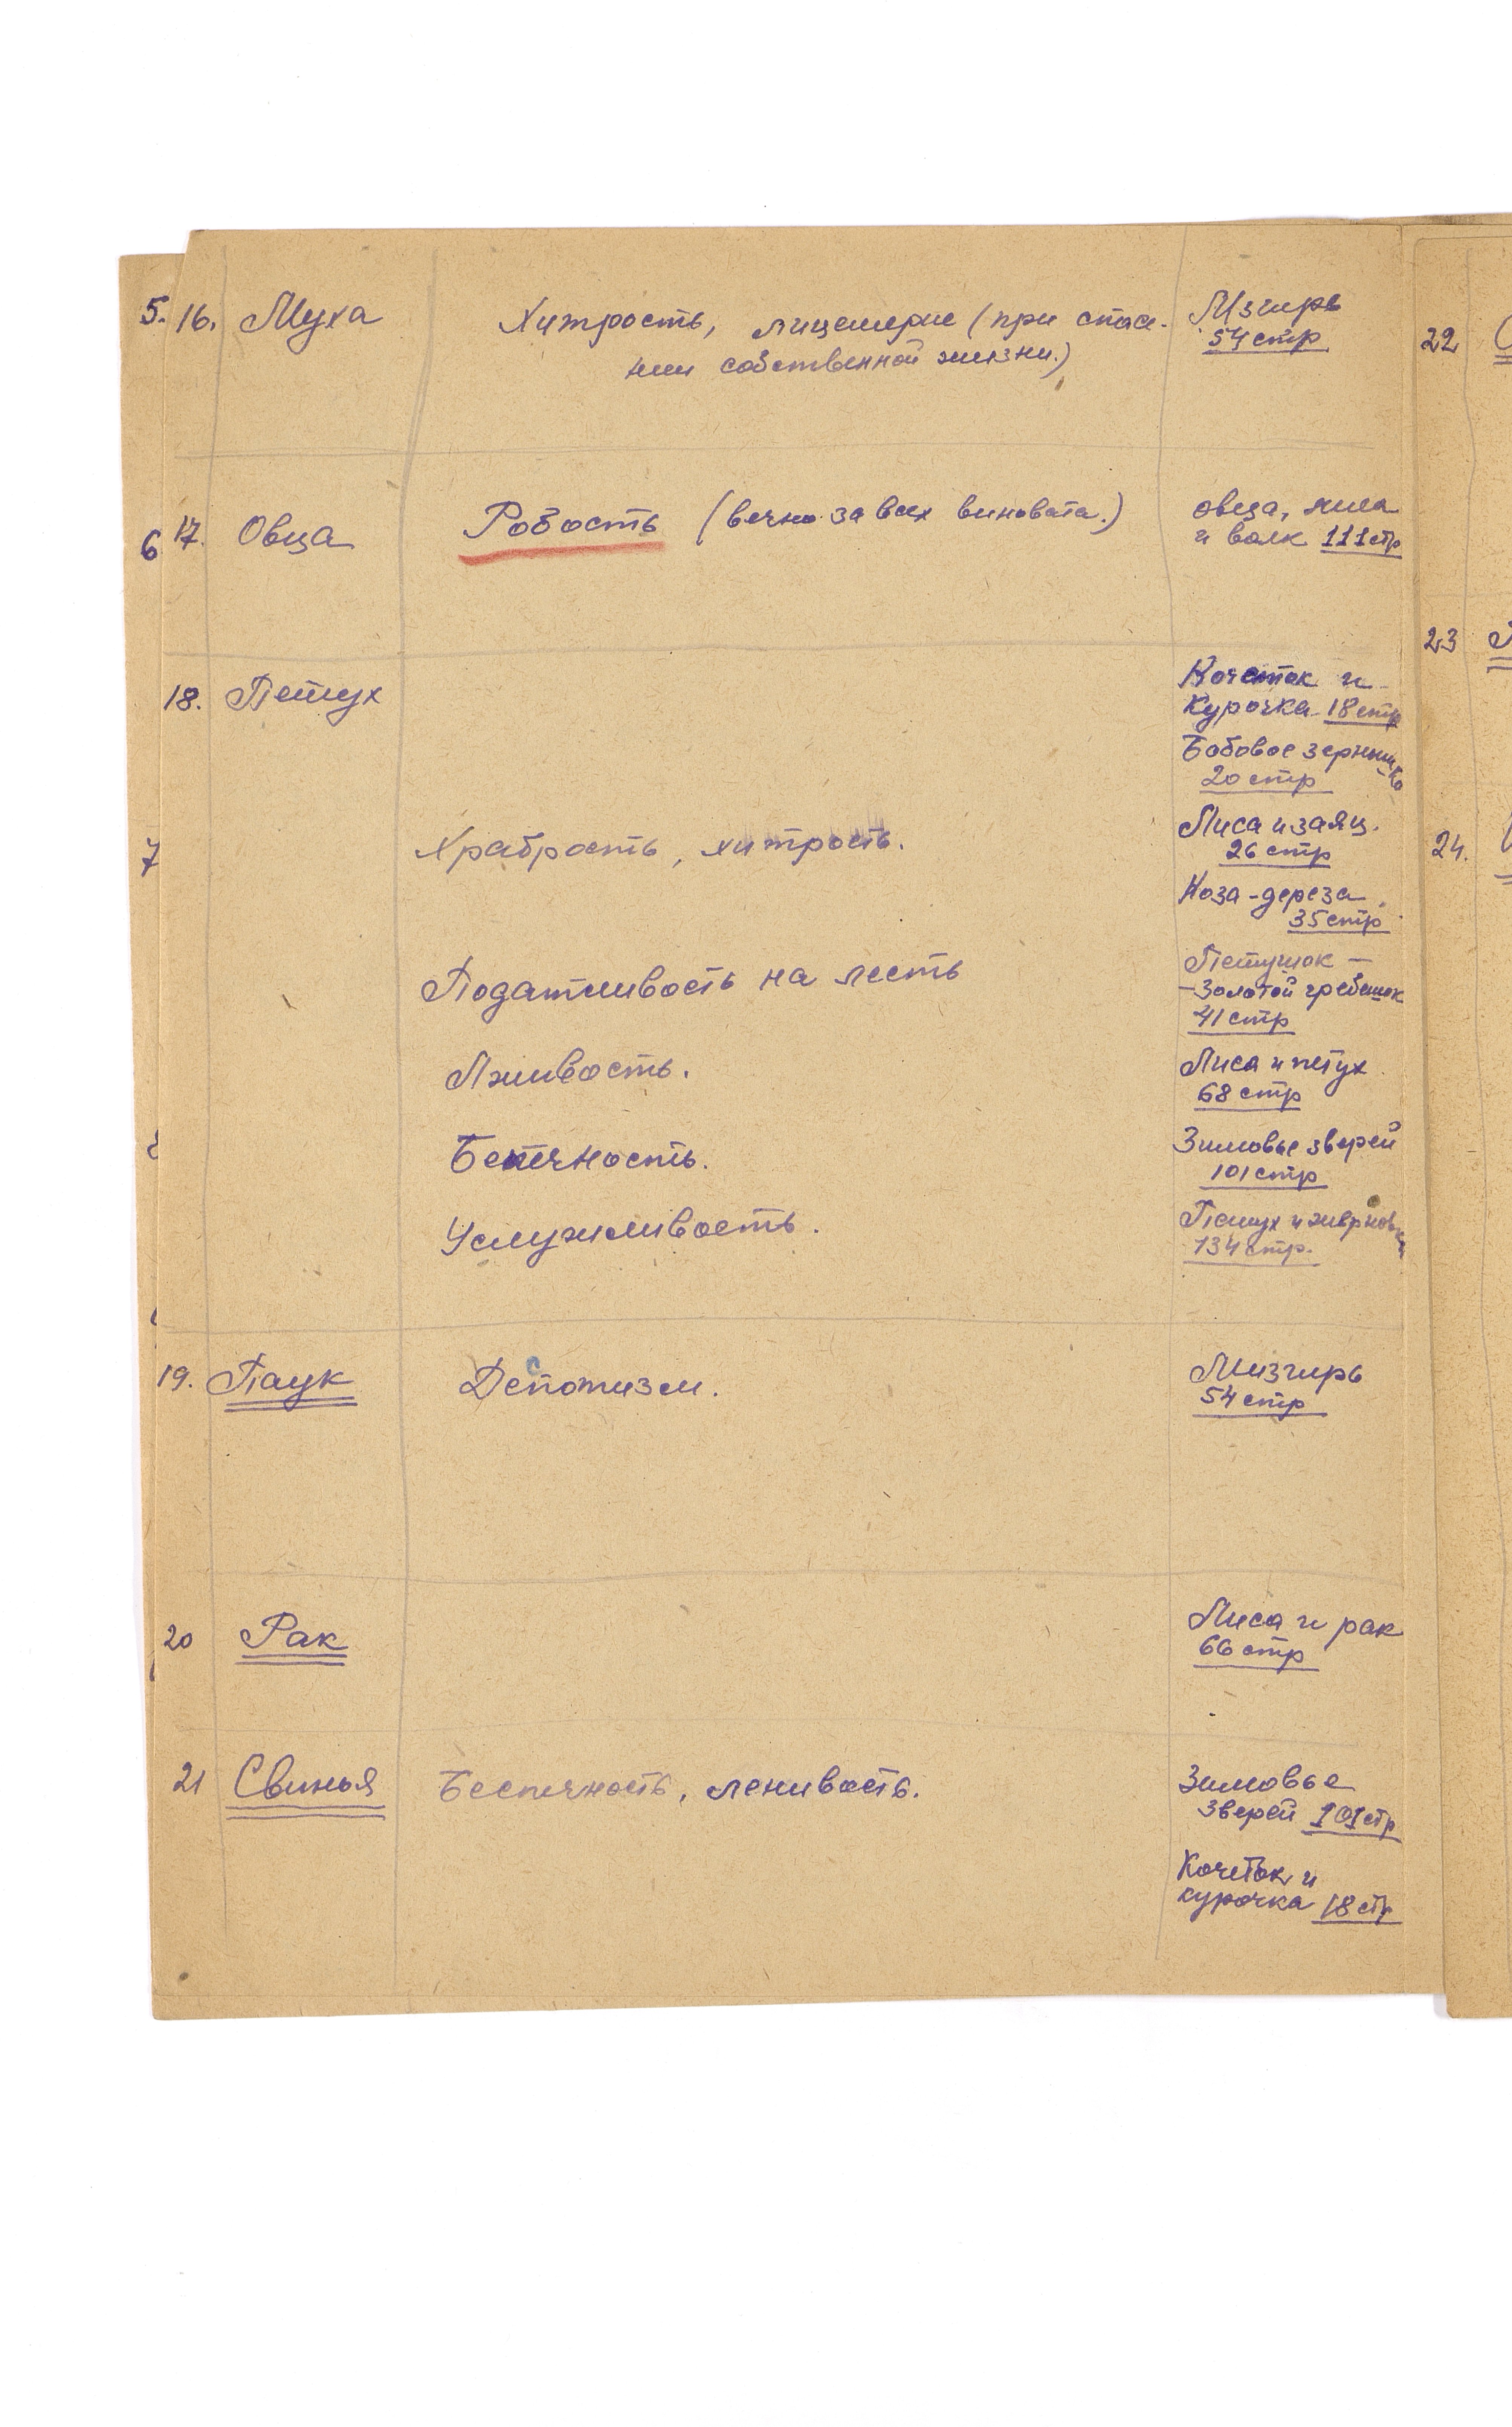 5. 16. Муха Хитрость, лицемерие (при спасе- Мзгирь
нии собственной жизни.) 54 стр
22
6 17. Овца Робость (вечно за всех виновата.) овца, лиса
и волк 111 стр
23
18. Петух Кочеток и
курочка 18 стр
Бобовое зернышко
20 стр
7 Храбрость, хитрость. Лиса и заяц.
26 стр
24.
Коза-дереза.
35 стр
Податливость на лесть Петушок —
— Золотой гребешок
41 стр
Лживость. Лиса и петух
68 стр
Беспечность. Зимовье зверей
101 стр
Услужливость. Петух и жерновцы
134 стр.
19. Паук Депотизм. Мизгирь
с 54 стр
20 Рак Лиса и рак
66 стр
21 Свинья Беспечность, ленивость. Зимовье
зверей 101 стр
Кочеток и
курочка 18 стр